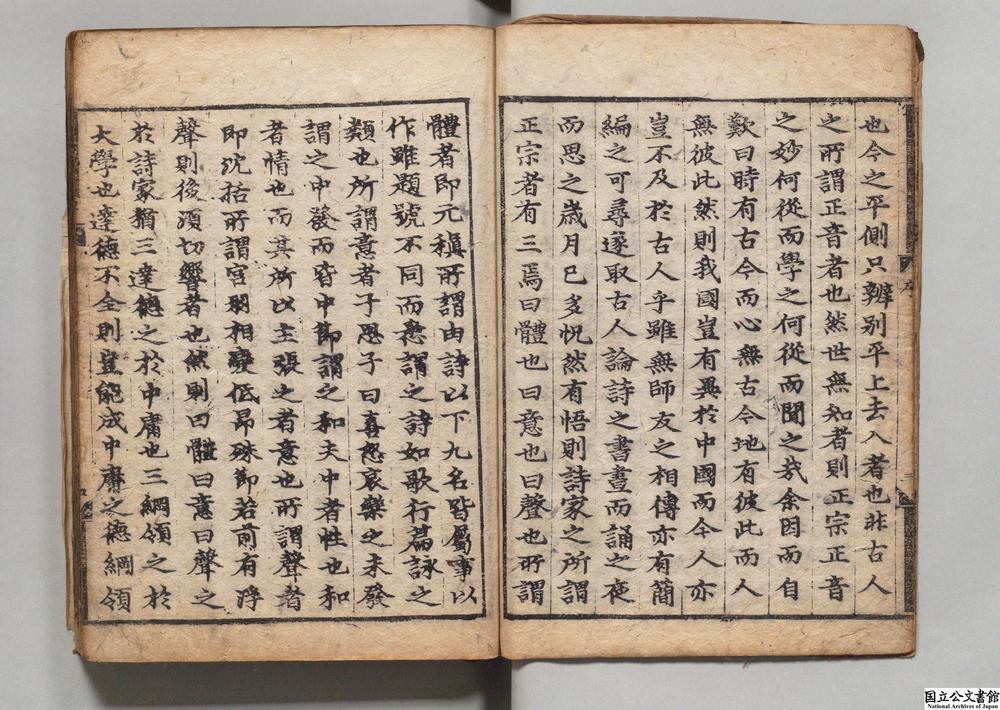 也今之平側只辨别平上去入者也非古人
之所謂正音者也然世無知者則正宗正音
之妙何從而學之何從而聞之哉余因而自
歎曰時有古今而心無古今地有彼此而人
無彼此然則我國豈有異於中國而今人亦
豈不及於古人乎雖無師友之相傳亦有簡
編之可尋遂取古人論詩之書晝而誦之夜
而思之歲月已多怳然有悟則詩家之所謂
正宗者有三焉曰體也曰意也曰聲也所謂
體者即元稹所謂由詩以下九名皆屬事以
作雖題號不同而悉謂之詩如歌行篇詠之
類也所謂意者子思子曰喜怒哀樂之未發
謂之中發而皆中節謂之和夫中者性也和
者情也而其所以主張之者意也所謂聲者
即沈括所謂宮羽相變低昂殊節若前有浮
聲則後須切響者也然則曰體曰意曰聲之
於詩家猶三達德之於中庸也三綱領之於
大學也達德不全則豈能成中庸之德綱領
国立公文書館
National Archives of Japan